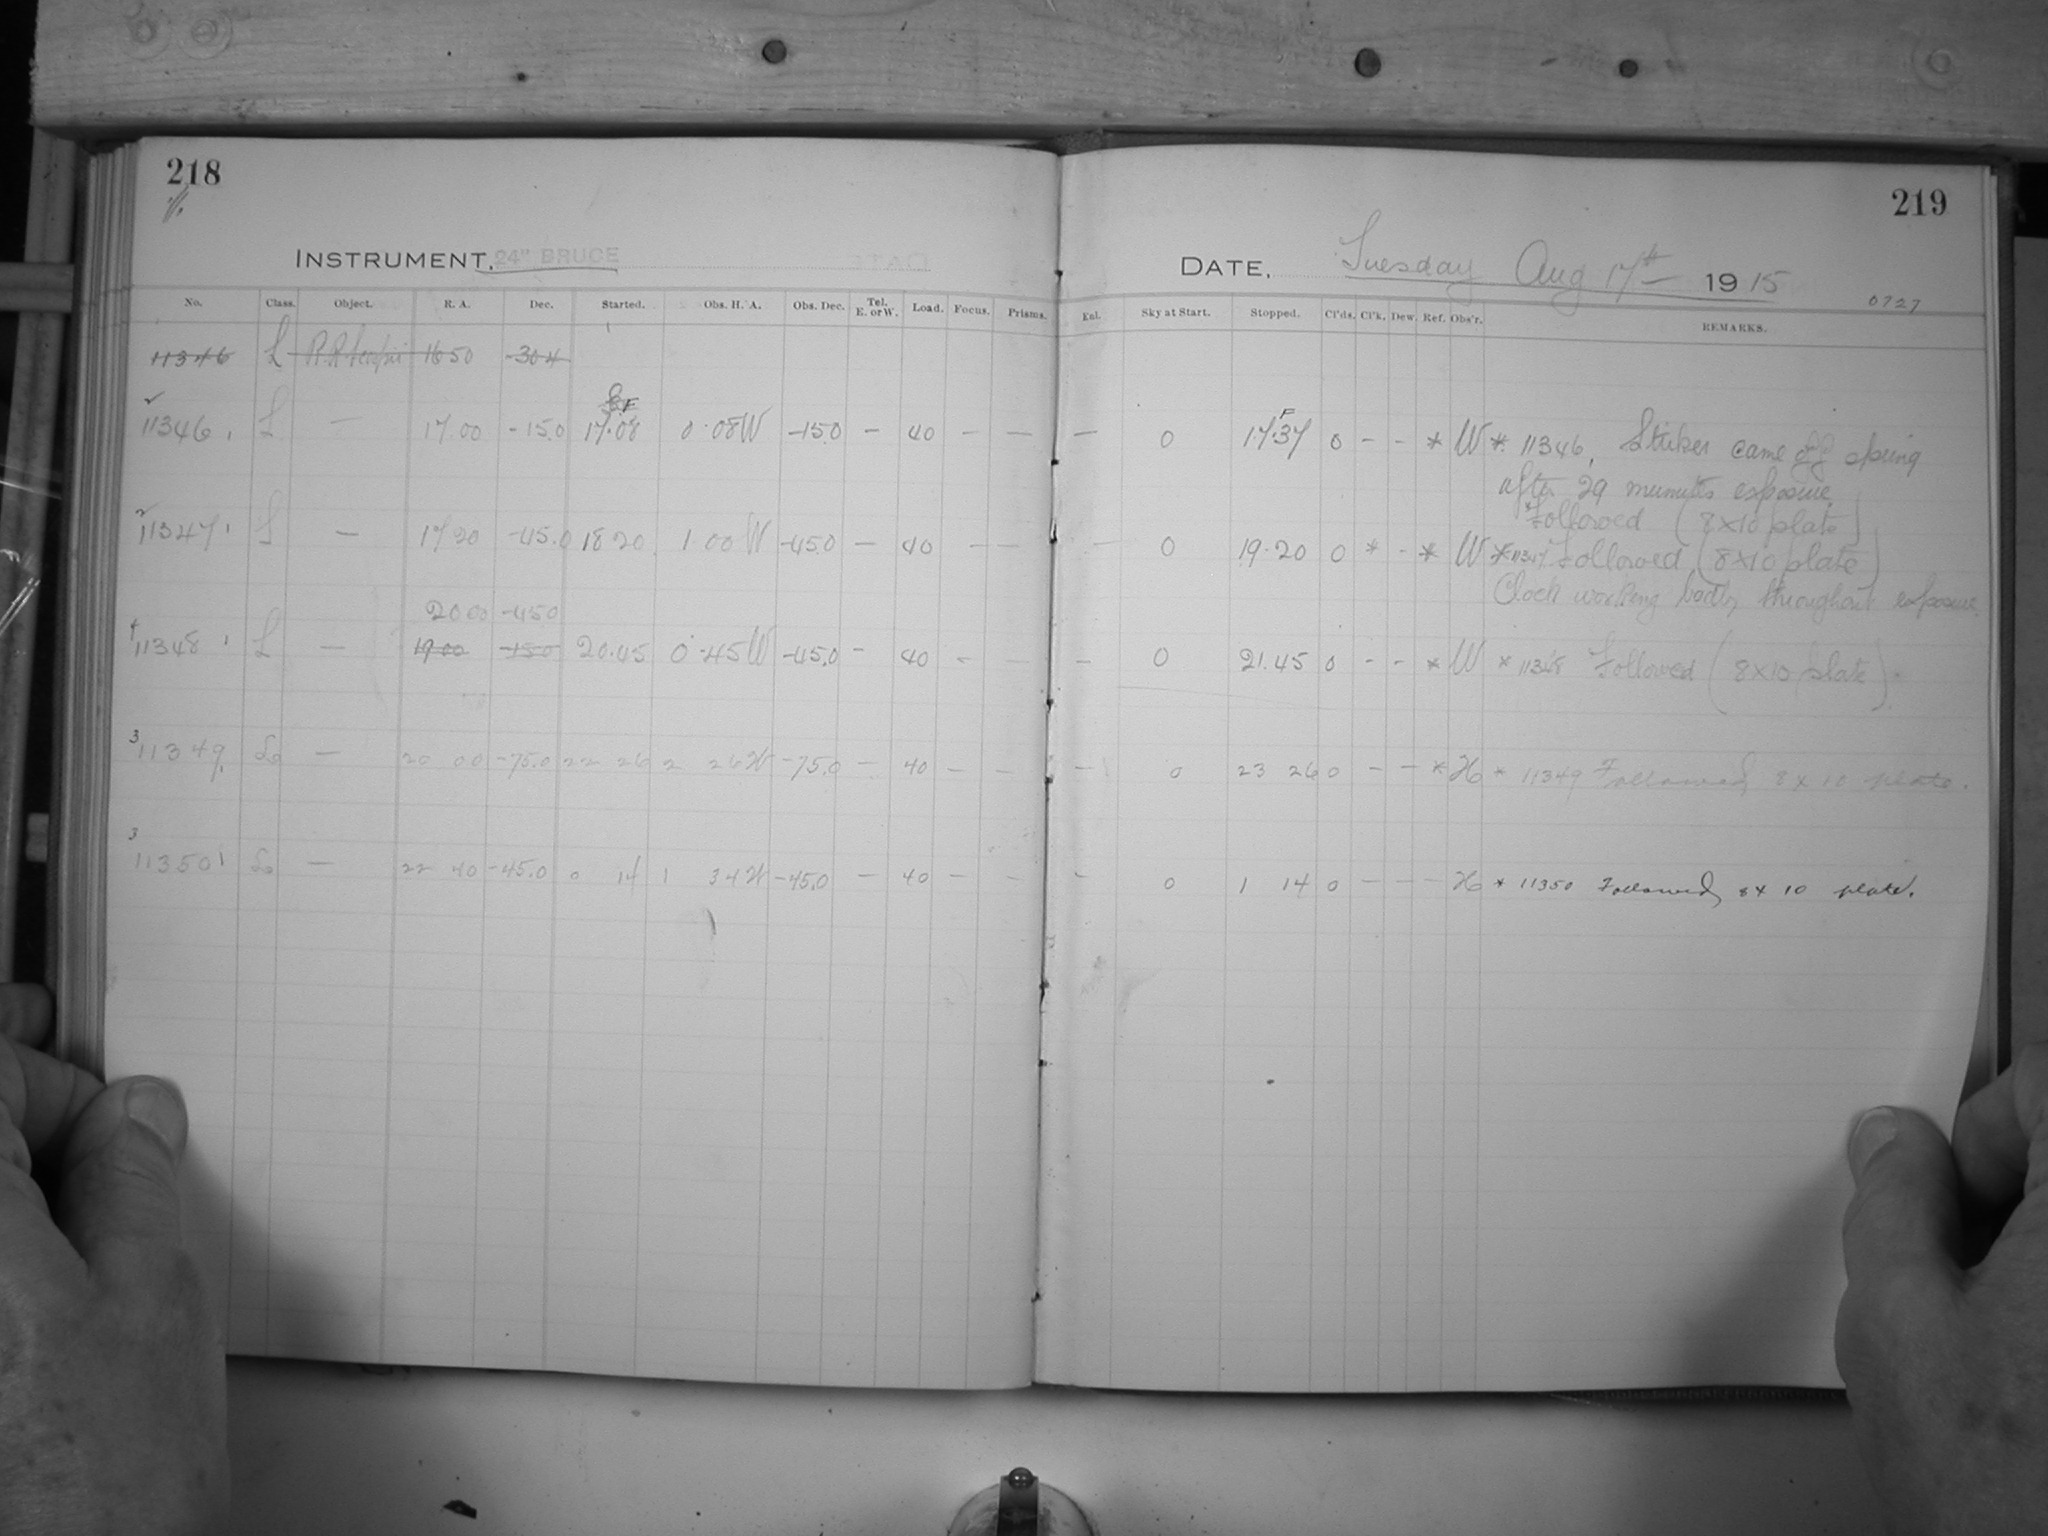 218
219
INSTRUMENT. 24" BRUCE
DATE. Tuesday Aug 17th 1915
0727
No. Class. Object. R. A. Dec. Started. Obs. H. A. Obs. Dec. Tel. E. or W. Load. Focus. Prisms. Enl. Sky at Start. Stopped. Cl'ds. Cl'k. Dew. Ref. Obs'r. REMARKS.
11346 L 1650 -30.4
11346 L — 17.00 -15.0 17.08 0.08W -15.0 — 40 — — — 0 17.37 0 - - * W * 11346, Striker came off spring
after 29 minutes exposure
*Followed (8x10 plate)
11347 L — 17 20 -45.0 18 20 1.00 W -45.0 — 40 — — — 0 19.20 0 * - * W *11347 Followed (8x10 plate)
Clock working badly throughout exposure
20 00 -45.0
11348 L — 19.00 -15.0 20.45 0.45W -45.0 - 40 - — — 0 21.45 0 - - * W * 11348 Followed (8x10 plate).
3
11349 L — 20 00 -75.0 22 26 2 26W -75.0 — 40 — — — 0 23 26 0 — — * H * 11349 Followed 8 x 10 plate.
3
11350 L — 22 40 -45.0 0 14 1 34W -45.0 — 40 — — - 0 1 14 0 — — — H * 11350 Followed 8 x 10 plate.